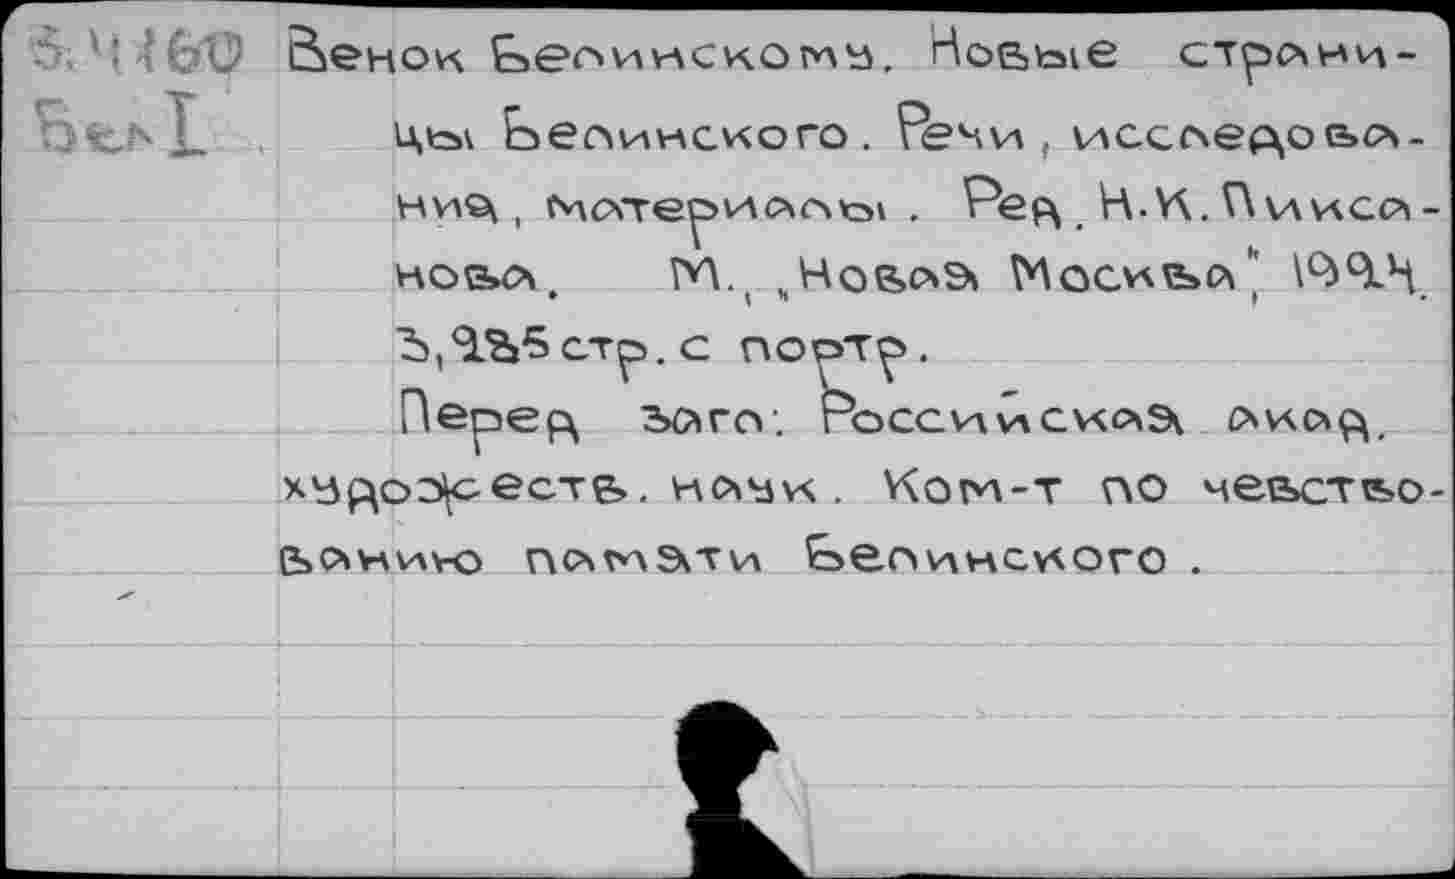 Венок Белинскому. Новые страни-
цы Белинского. Речи, исследова-
ния, материалы. Ред. Н.К. Пикса-
нова. М., „Новая Москва", 1924.
3,285 стр. с портр.
Перед загл: Российская акад.
художеств. наук. Ком-т по чевство-
ванию памяти Белинского.